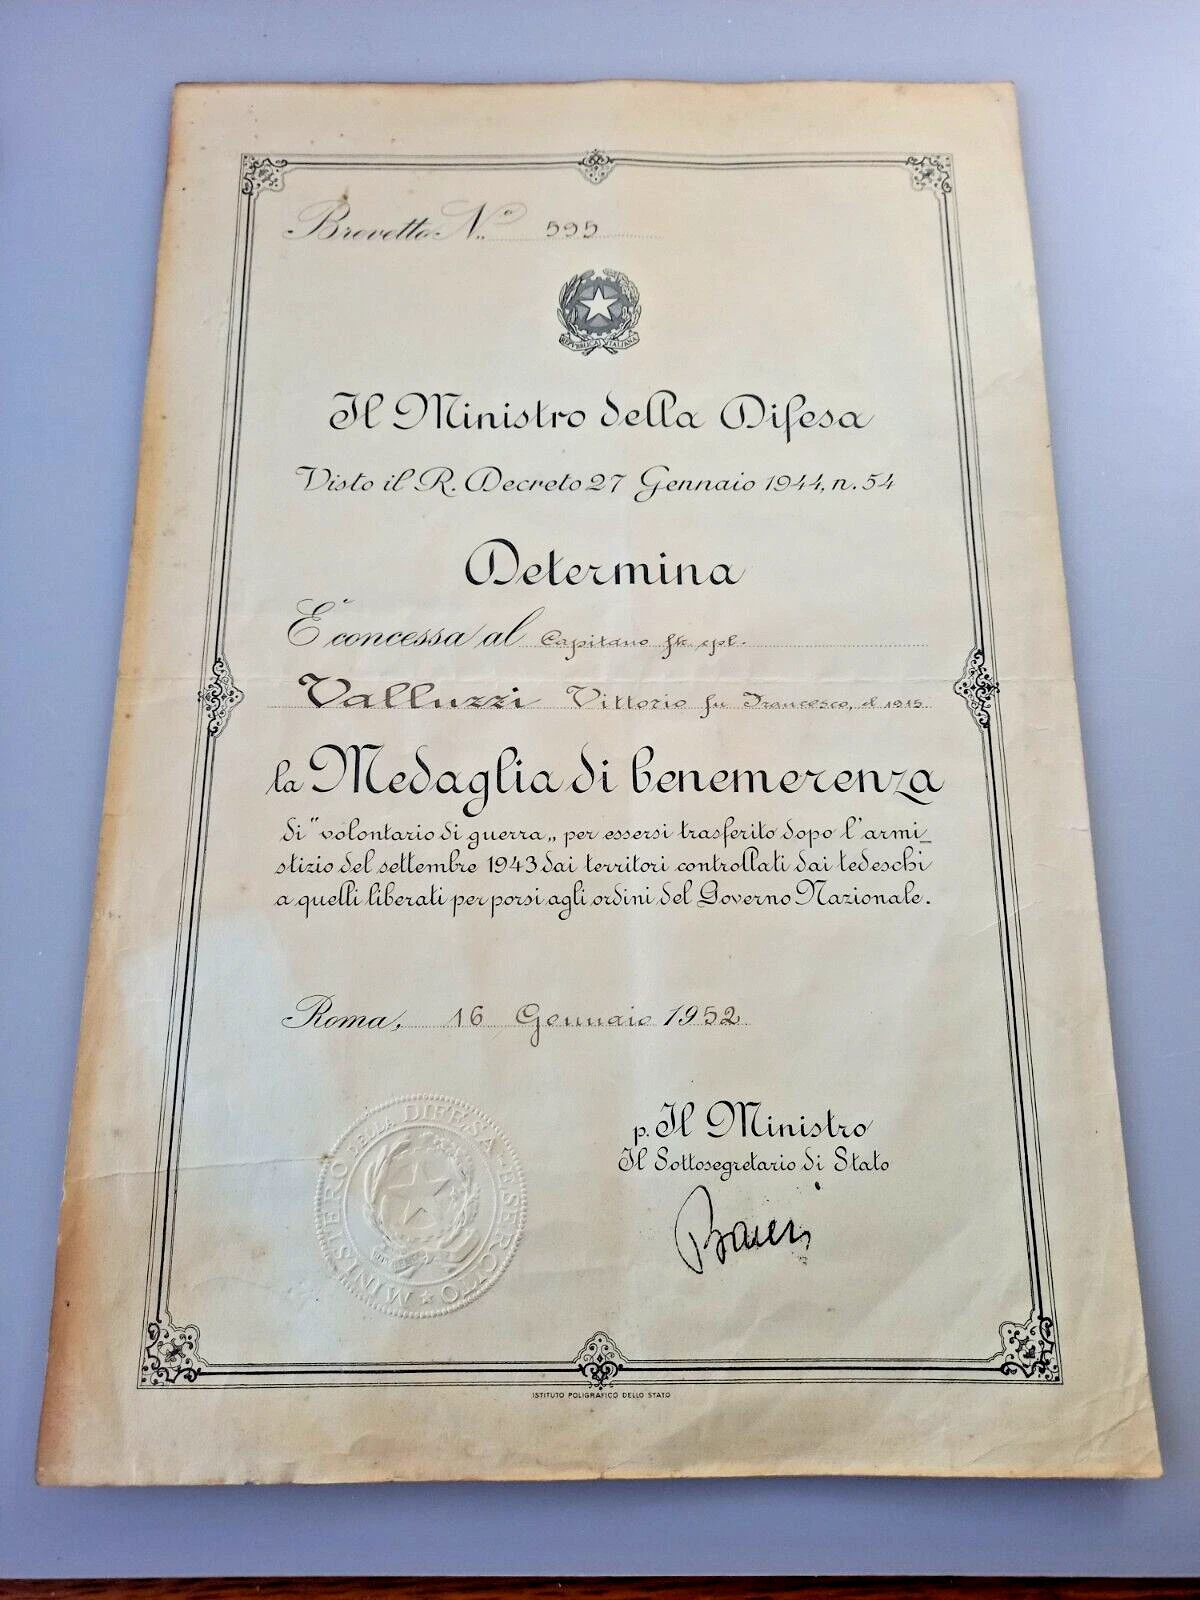 Brevetto N.° 595
REPVBBLICA ITALIANA
Il Ministro della Difesa
Visto il R. Decreto 27 Gennaio 1944, n. 54
Determina
E' concessa al Capitano ftr. cpl.
Valluzzi Vittorio fu Francesco, cl 1915
la Medaglia di benemerenza
di "volontario di guerra„ per essersi trasferito dopo l'armi_
stizio del settembre 1943 dai territori controllati dai tedeschi
a quelli liberati per porsi agli ordini del Governo Nazionale.
Roma, 16 Gennaio 1952
p. Il Ministro
Il Sottosegretario di Stato
MINISTERO DELLA DIFESA-ESERCITO
ISTITUTO POLIGRAFICO DELLO STATO